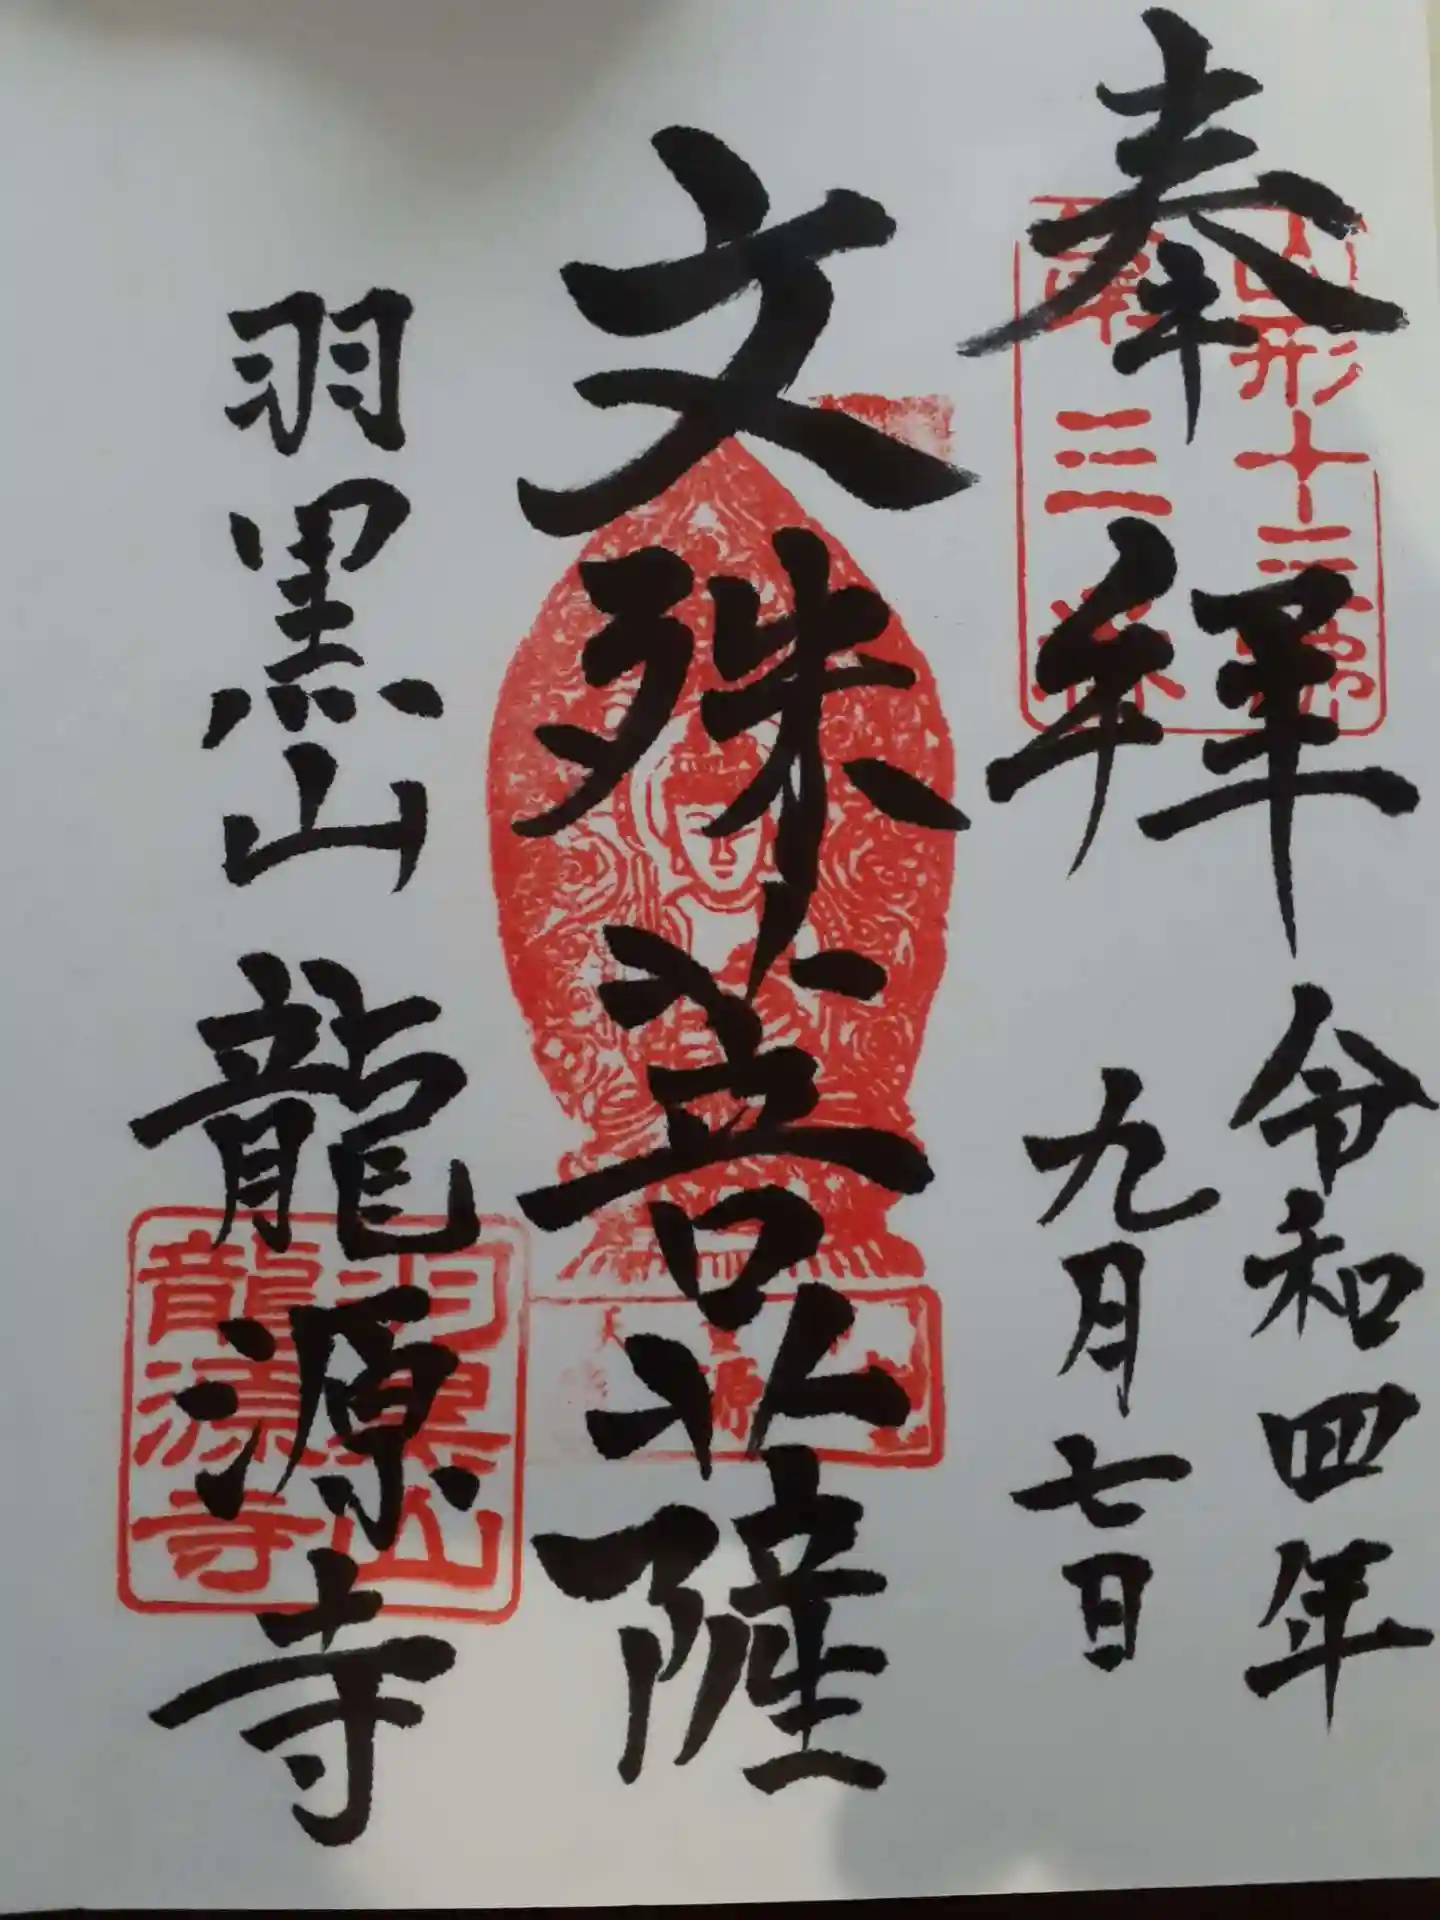 奉拝
令和四年
九月七日
山形十三佛
第三番
文殊菩薩
羽黒山龍源寺
羽黒山
龍源寺